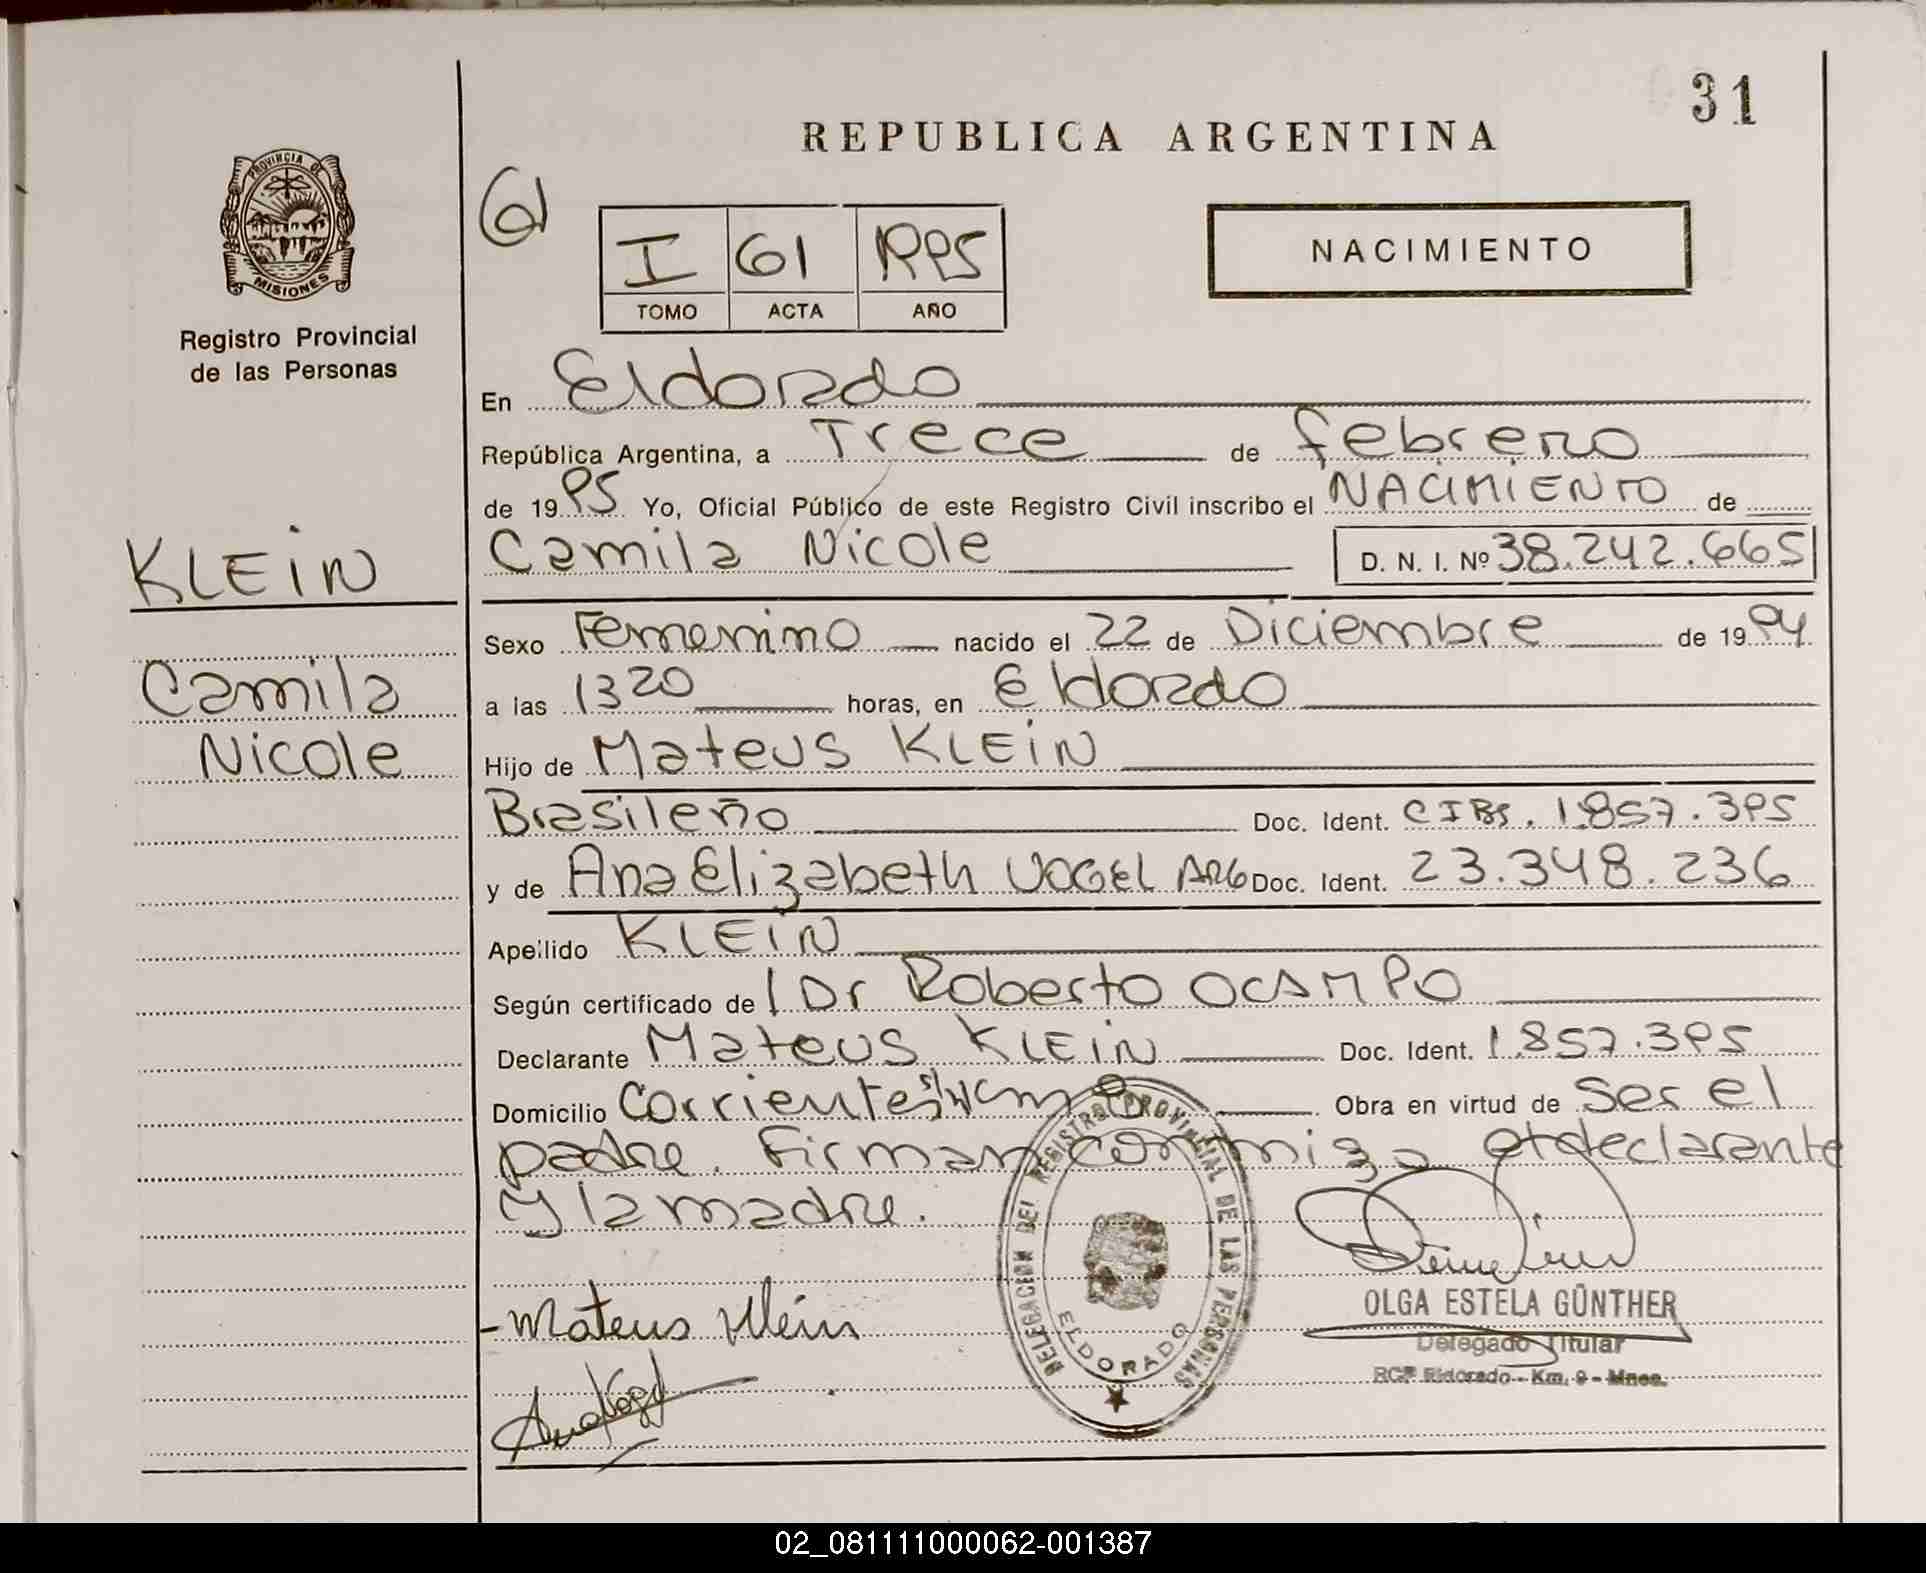 31
REPUBLICA ARGENTINA
PROVINCIA DE
MISIONES
Registro Provincial
de las Personas
61
I 61 1995
TOMO ACTA AÑO
NACIMIENTO
En Eldorado
República Argentina, a Trece de febrero
de 1995 Yo, Oficial Público de este Registro Civil inscribo el NACIMIENTO de
Camila Nicole D. N. I. Nº 38.242.665
KLEIN
Camila
Nicole
Sexo Femenino nacido el 22 de Diciembre de 1994
a las 13 20 horas, en Eldorado
Hijo de Mateus KLEIN
Brasileño Doc. Ident. CIBs. 1.857.395
y de Ana Elizabeth VOGEL ARG Doc. Ident. 23.348.236
Apellido KLEIN
Según certificado de Dr Roberto OCAMPO
Declarante Mateus KLEIN Doc. Ident. 1.857.395
Domicilio Corrientes s/n Km 9 Obra en virtud de ser el
padre. Firman conmigo el declarante
y la madre.
DELEGACION DEL REGISTRO PROVINCIAL DE LAS PERSONAS
ELDORADO
Mateus Klein
Ana Vogel
OLGA ESTELA GÜNTHER
Delegado Titular
RCP Eldorado - Km. 9 - Mnes.
02_081111000062-001387